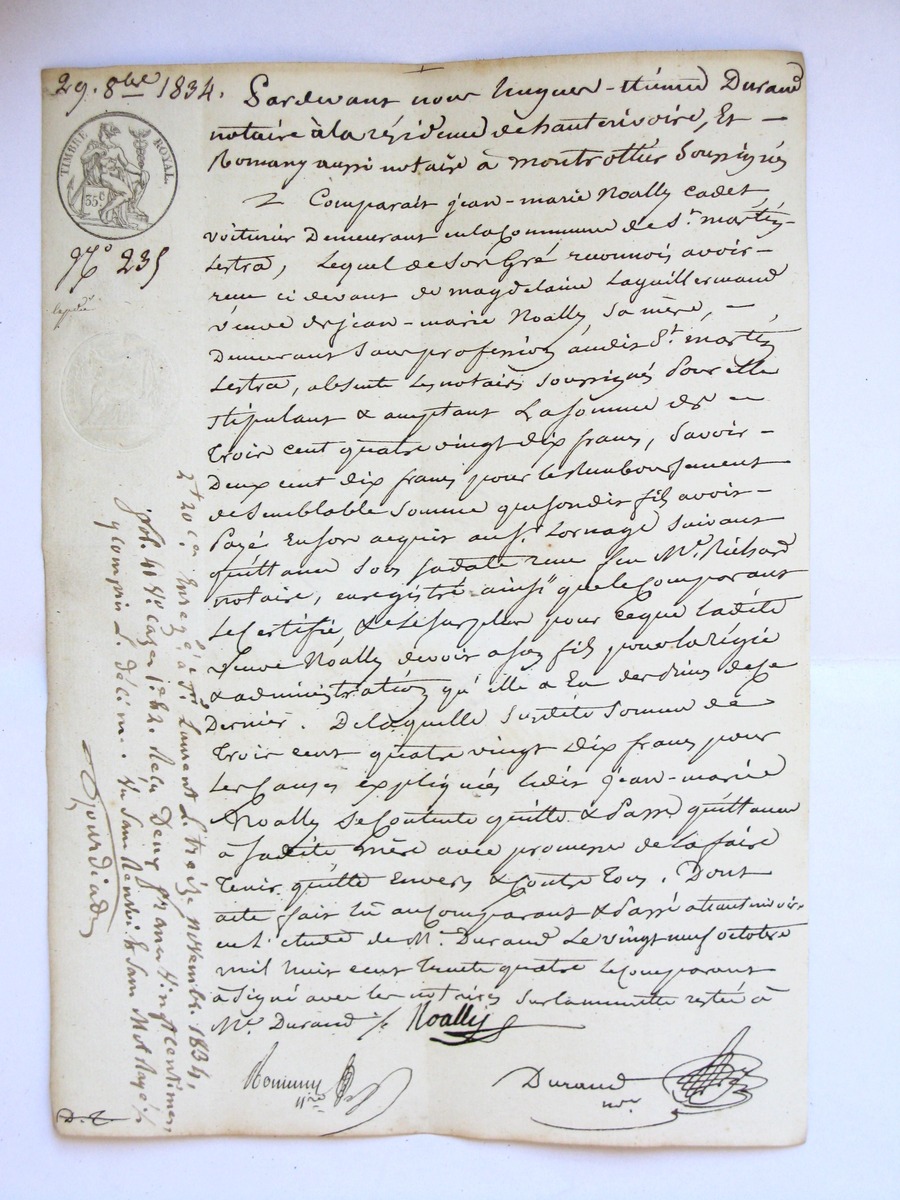 29. 8bre 1834.
Pardevant nous hugues-étienne Durand
notaire à la résidence de hauterivoire, Et
Romany aussi notaire à montrottier Soussignés
TIMBRE ROYAL.
35 c
Nº 235
Comparait jean-marie Noally cadet,
voiturier Demeurant en la Commune de St. martin
Lestra, Lequel de Son Gré reconnois avoir
reçu ci devant de magdelaine Laguillermand
veuve de jean-marie Noally, Sa mère,
Demeurant Sans profession audit St. martin
Lestra, absente Les notaires soussignés Pour elle
Stipulant & acceptant La Somme de
Trois cent quatre vingt dix francs, Savoir
Deux cent dix francs pour le Remboursement
de Semblable Somme que sondit fils avoit
Payé En son acquit au Sr. Lornage Suivant
quittance Sous Sa date reçue feu Me. Richard
notaire, enregistré ainsi que le Comparant
Le Certifie, & Le Surplus pour ce que Ladite
Veuve Noally devoit a son fils pour la régie
& administration qu'elle a Eu des biens de
Dernier. De laquelle Surdite Somme de
Trois cent quatre vingt Dix francs pour
Les Causes expliquées Ledit jean-marie
Noally Se Contente quitte & Passe quittance
à Sadite mère avec promesse de la faire
Tenir quitte Envers & Contre Tous. Dont
acte fait Lu au Comparant & Passé a hauterivoire
en L'étude de Me. Durand Le vingt neuf octobre
mil huit cent trente quatre le comparant
à Signé avec les notaires Sur la minutte restée à
Me. Durand /. Noally
Romany
nre
Durand
nre
Enregé. à St. Laurent L. treize novembre 1834,
fol. 41 Vo. Case 1re. & 2. Reçu Deux francs Vingt centimes
y compris L. Décime
Gourdiad
D. L.